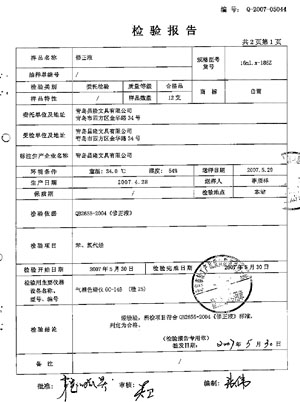 编 号: Q-2007-05044
检 验 报 告
共 2 页 第 1 页
样品名称 修正液 规格型号 16ml x-18SZ
货号
抽样单编号 /
检验类别 委托检验 质量等级 合格品 商 标
样品特性 / 样品数量 12支
委托单位及地址 青岛昌隆文具有限公司
受检单位及地址 青岛昌隆文具有限公司
标注生产企业名称 青岛昌隆文具有限公司
环境条件 室温: 24.0℃ 湿度: 54% 送样日期 2007.5.29
生产日期 2007.4.28 送样人
保质期 / 检验地点 本站
检验依据 QB2655-2004《修正液》
检验项目 苯、氯代烃
检验开始日期 2007年5月30日 检验完成日期 2007年5月30日
检验用主要仪器
设备名称、 气相色谱仪 GC-14B
型号、编号
检验结论 经检验, 所检项目符合QB2655-2004《修正液》标准,
判定为合格。
(检验报告专用章)
签发日期: 2007年5月30日
备 注 /
批准: 审核: 编制: